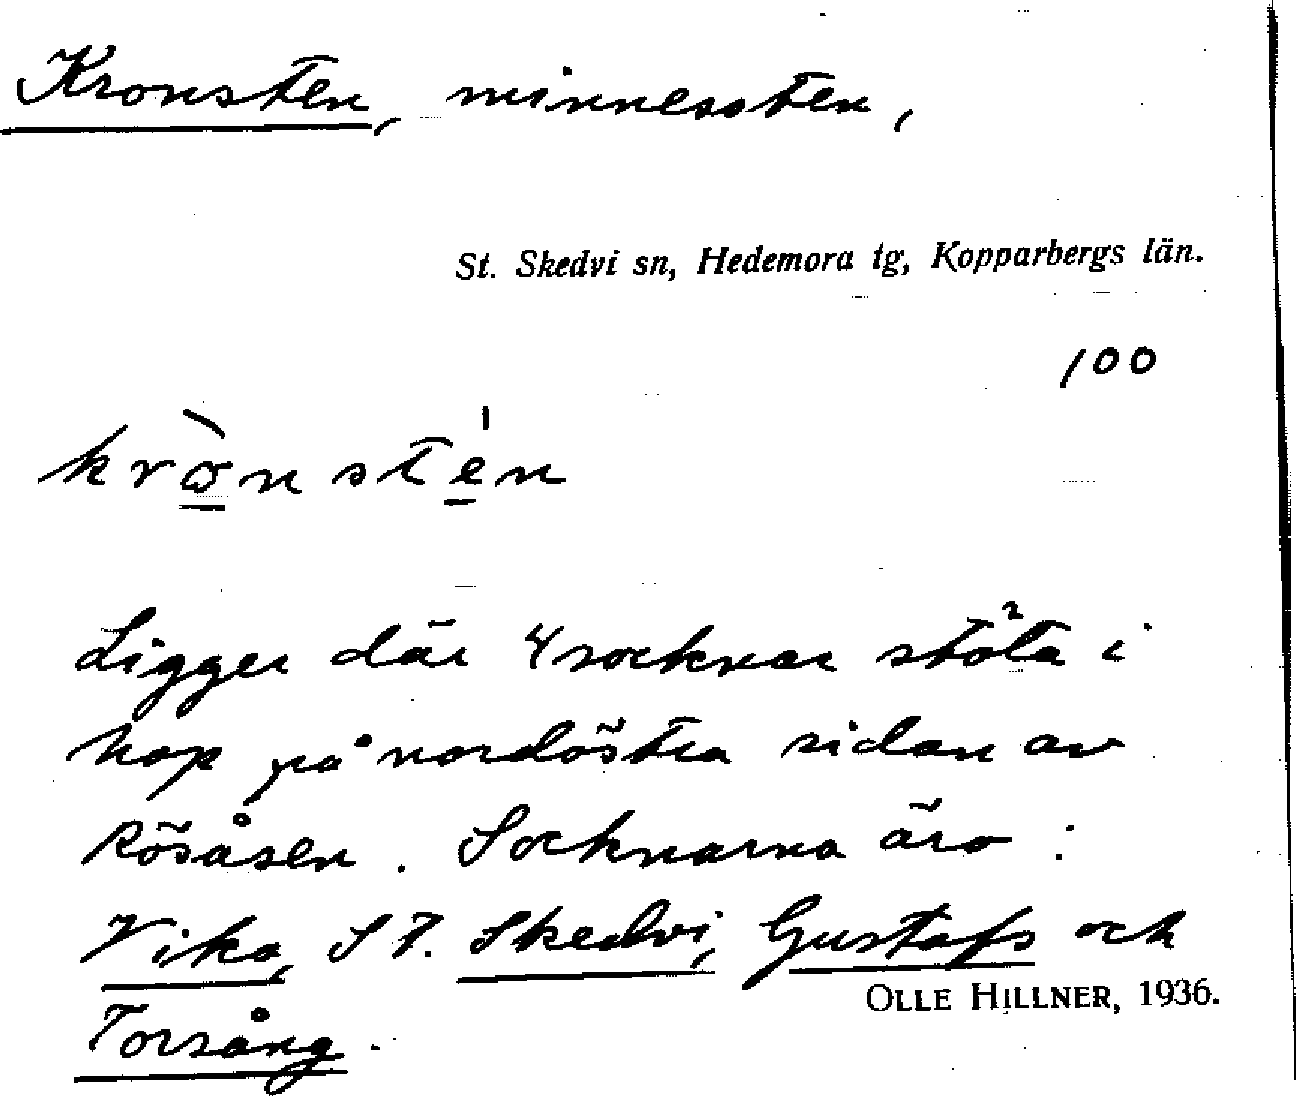 Kronsten, minnessten,
St. Skedvi sn, Hedemora tg, Kopparbergs län.
100
krò̱nsté̱n
Ligger där 4 socknar stöta i
hop på nordöstra sidan av
Rösåsen. Socknarna äro:
Vika, St. Skedvi, Gustafs och
OLLE HILLNER, 1936.
Torsång.